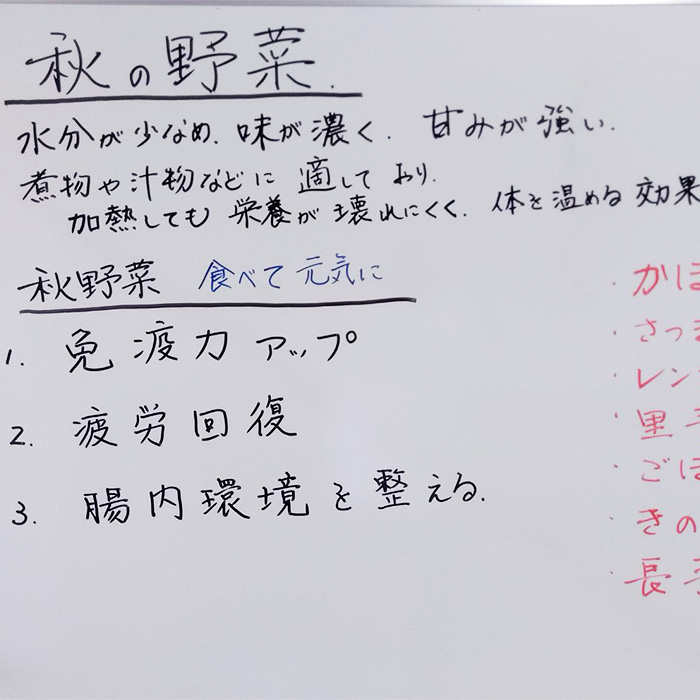 秋の野菜.
水分が少なめ. 味が濃く. 甘みが強い.
煮物や汁物などに 適しており.
加熱しても 栄養が 壊れにくく. 体を温める 効果
秋野菜 食べて 元気に
1. 免疫力アップ
2. 疲労回復
3. 腸内環境を整える.
・かほ
・さつま
・レン
・里
・ごぼ
・きの
・長